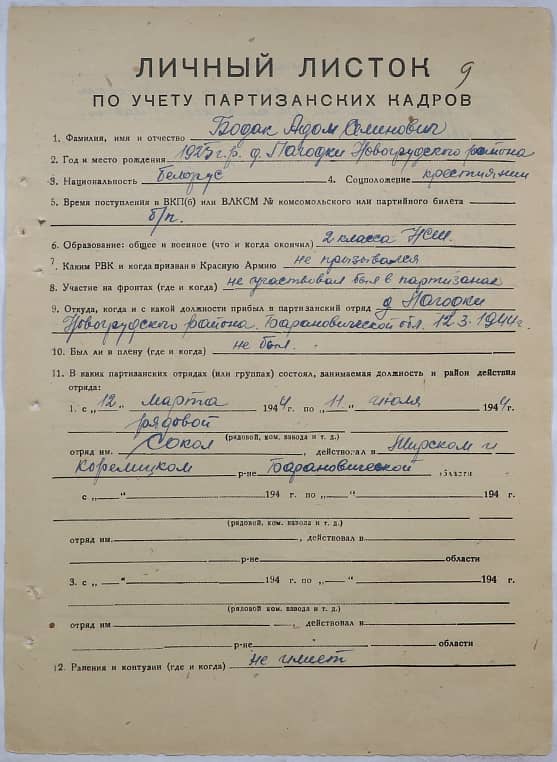 ЛИЧНЫЙ ЛИСТОК 9
ПО УЧЕТУ ПАРТИЗАНСКИХ КАДРОВ
1. Фамилия, имя и отчество Бодак Адам Семинович
2. Год и место рождения 1925 г.р. д. Пагодки Новогрудского района
3. Национальность белорус 4. Соцположение крестиянин
5. Время поступления в ВКП(б) или ВЛКСМ № комсомольского или партийного билета
б/п.
6. Образование: общее и военное (что и когда окончил) 2 класса НСШ.
7. Каким РВК и когда призван в Красную Армию не призывался
8. Участие на фронтах (где и когда) не участвовал был в партизанах
9. Откуда, когда и с какой должности прибыл в партизанский отряд д Пагодки
Новогрудского района. Барановической обл. 12.3.1944г.
10. Был ли в плену (где и когда) не был.
11. В каких партизанских отрядах (или группах) состоял, занимаемая должность и район действия
отряда:
1. с „12" марта 1944 г. по „11" июля 1944 г.
рядовой
(рядовой, ком. взвода и т. д.)
отряд им. Сокол, действовал в Мирском и
Кореличком р-не Барановической области
с „ " 194 г. по „ " 194 г.
(рядовой, ком. взвода и т. д.)
отряд им. , действовал в
р-не области
3. с „ " 194 г. по „ " 194 г.
(рядовой ком. взвода и т. д.)
отряд им , действовал в
р-не области
12. Ранения и контузии (где и когда) не имеет